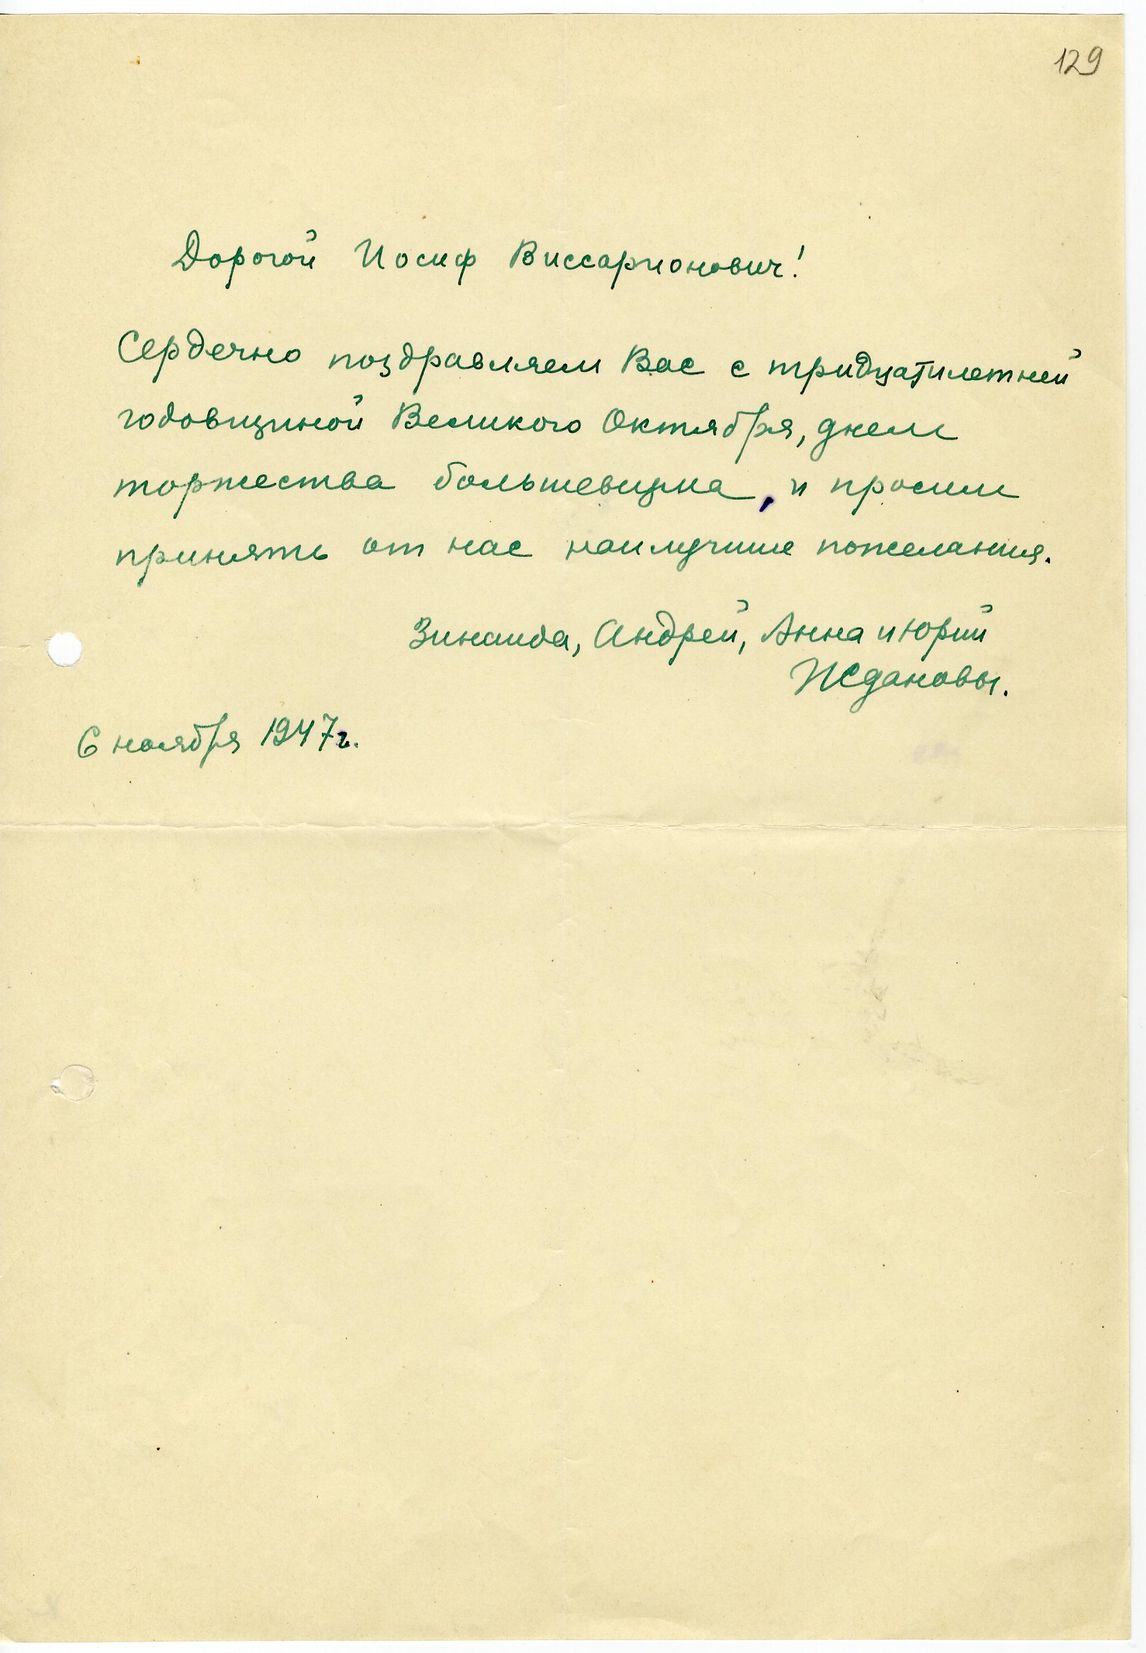 129
Дорогой Иосиф Виссарионович!
Сердечно поздравляем Вас с тридцатилетней
годовщиной Великого Октября, днем
торжества большевизма, и просим
принять от нас наилучшие пожелания.
Зинаида, Андрей, Анна и Юрий
Ждановы.
6 ноября 1947г.